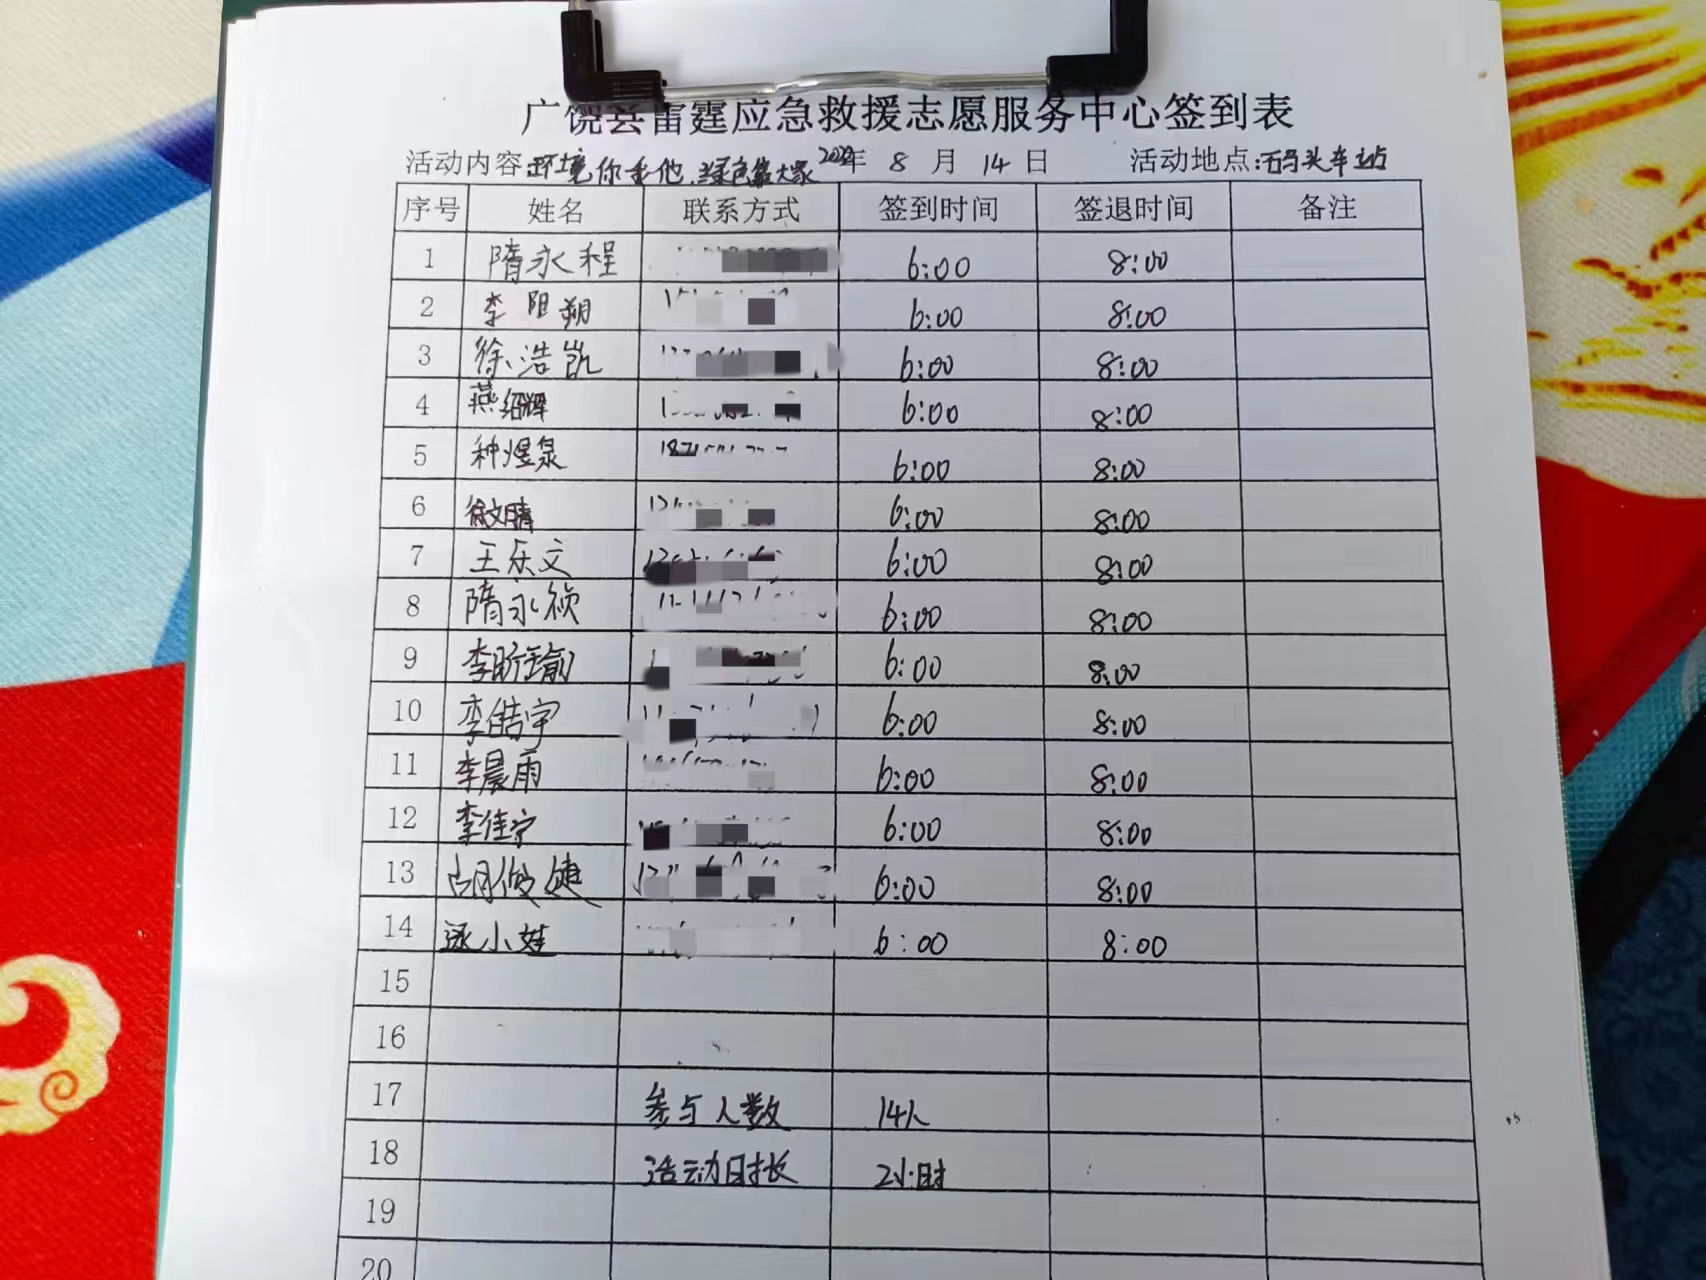 广饶县雷霆应急救援志愿服务中心签到表
活动内容:环境你我他,绿色靠大家 年 8 月 14 日 活动地点:码头车站
序号 姓名 联系方式 签到时间 签退时间 备注
1 隋永程 6:00 8:00
2 李阳朔 6:00 8:00
3 徐浩凯 6:00 8:00
4 燕绍辉 6:00 8:00
5 种煜泉 6:00 8:00
6 徐文晴 6:00 8:00
7 王乐文 6:00 8:00
8 隋永祯 6:00 8:00
9 李昕瑜 6:00 8:00
10 李皓宇 6:00 8:00
11 李晨雨 6:00 8:00
12 李佳宁 6:00 8:00
13 胡俊健 6:00 8:00
14 小娃 6:00 8:00
15
16
17 参与人数 14人
18 活动时长 2小时
19
20